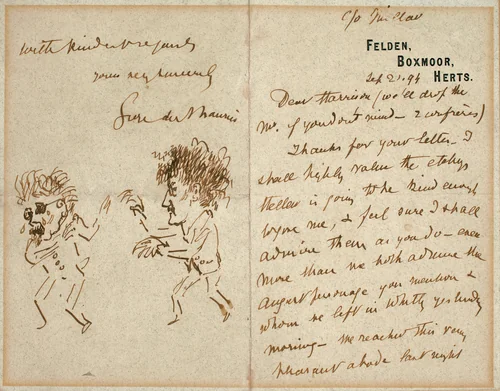 FELDEN,
BOXMOOR,
HERTS.
Sep 2. 94
Dear Harrison (we'll drop the
Mr. if you don't mind — 2 confrères)
Thanks for your letter — I
shall highly value the etchgs
is going to be kind enough
to give me, & feel sure I shall
admire them as you do — even
more than we both admire the
august personage you mention &
whom we left in Whitby yesterday
morning — we reached this very
pleasant abode last night
with kindest regards
yours very sincerely